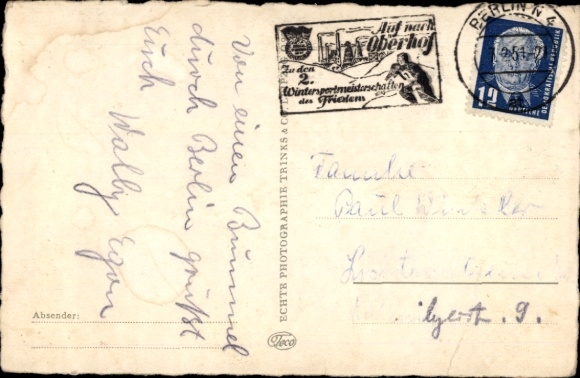 Von einem Bummel
durch Berlin grüßt
Euch
Wally Egon
Absender:
ECHTE PHOTOGRAPHIE TRINKS & CO.
Teco
Auf nach
Oberhof
Zu den
2.
Wintersportmeisterschaften
des Friedens
BERLIN N 4
2.51
12
DEUTSCHE DEMOKRATISCHE REPUBLIK
Familie
Paul Winkler
9.